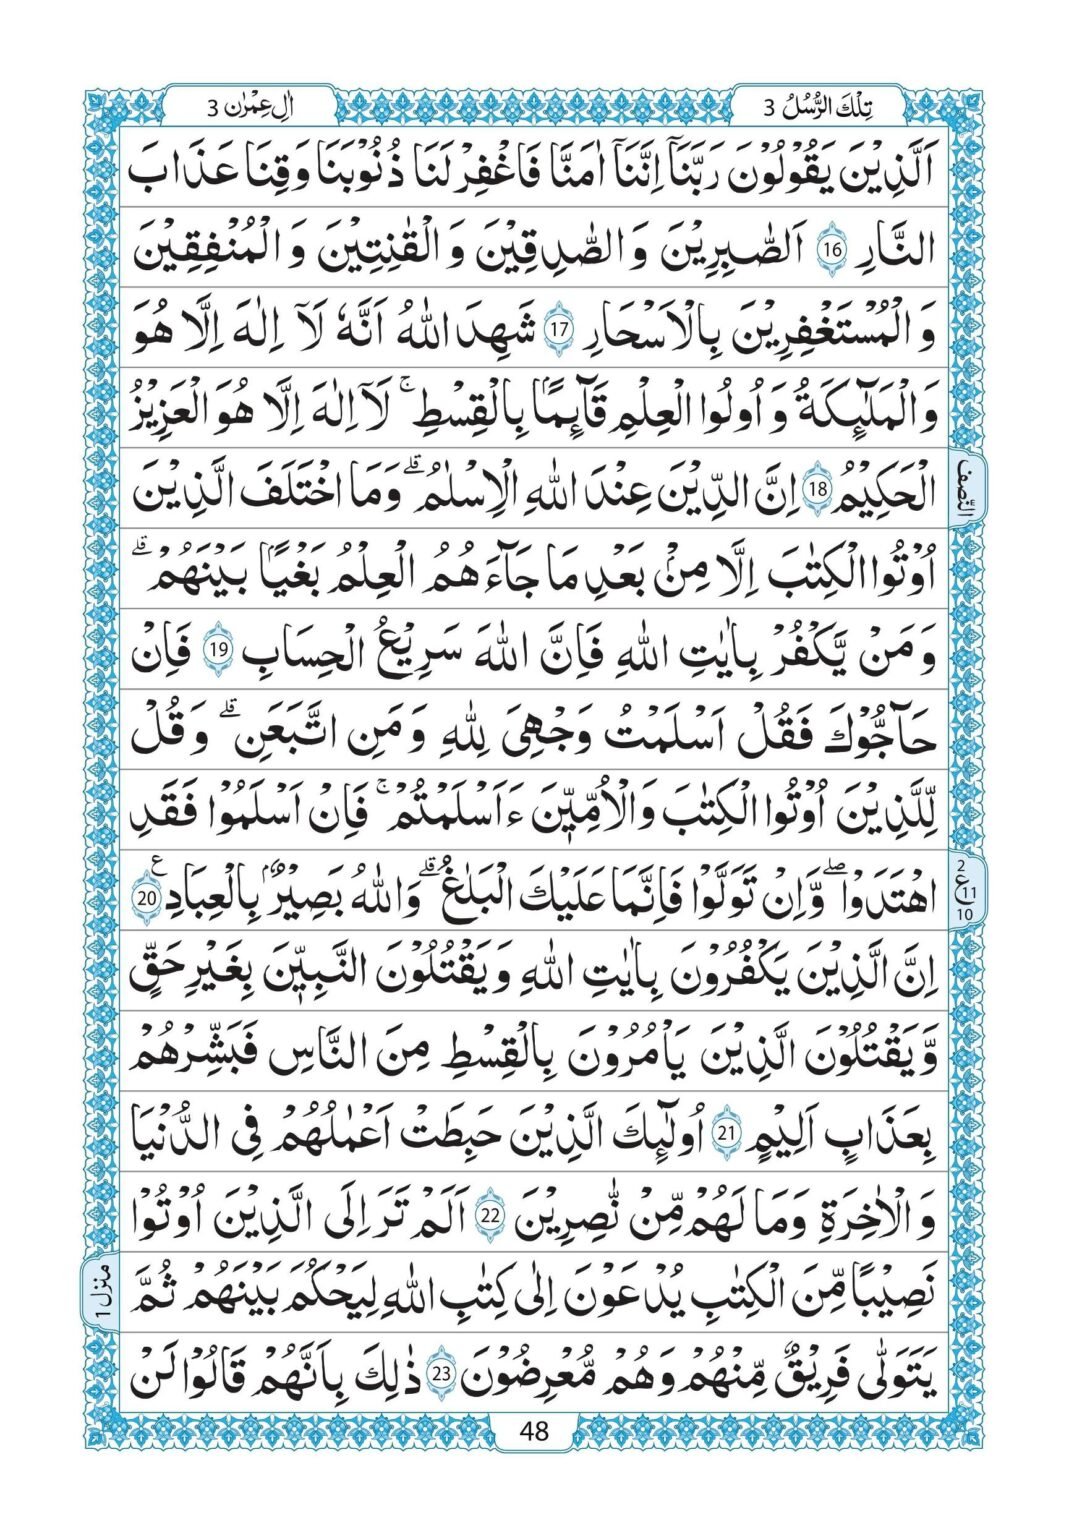 تِلْكَ الرُّسُلُ 3
اٰلِ عِمْرٰن 3
اَلَّذِيْنَ يَقُوْلُوْنَ رَبَّنَاۤ اِنَّنَاۤ اٰمَنَّا فَاغْفِرْ لَنَا ذُنُوْبَنَا وَقِنَا عَذَابَ
النَّارِ 16 اَلصّٰبِرِيْنَ وَالصّٰدِقِيْنَ وَالْقٰنِتِيْنَ وَالْمُنْفِقِيْنَ
وَالْمُسْتَغْفِرِيْنَ بِالْاَسْحَارِ 17 شَهِدَ اللّٰهُ اَنَّهٗ لَاۤ اِلٰهَ اِلَّا هُوَ
وَالْمَلٰٓئِكَةُ وَاُولُوا الْعِلْمِ قَآئِمًاۢ بِالْقِسْطِ ۚ لَاۤ اِلٰهَ اِلَّا هُوَ الْعَزِيْزُ
الْحَكِيْمُ 18 اِنَّ الدِّيْنَ عِنْدَ اللّٰهِ الْاِسْلٰمُ ۗ وَمَا اخْتَلَفَ الَّذِيْنَ
النّصف
اُوْتُوا الْكِتٰبَ اِلَّا مِنْۢ بَعْدِ مَا جَآءَهُمُ الْعِلْمُ بَغْيًاۢ بَيْنَهُمْ ۗ
وَمَنْ يَّكْفُرْ بِاٰيٰتِ اللّٰهِ فَاِنَّ اللّٰهَ سَرِيْعُ الْحِسَابِ 19 فَاِنْ
حَآجُّوْكَ فَقُلْ اَسْلَمْتُ وَجْهِىَ لِلّٰهِ وَمَنِ اتَّبَعَنِ ۗ وَقُلْ
لِّلَّذِيْنَ اُوْتُوا الْكِتٰبَ وَالْاُمِّيّٖنَ ءَاَسْلَمْتُمْ ۚ فَاِنْ اَسْلَمُوْا فَقَدِ
اهْتَدَوْا ۖ وَّاِنْ تَوَلَّوْا فَاِنَّمَا عَلَيْكَ الْبَلٰغُ ۗ وَاللّٰهُ بَصِيْرٌۢ بِالْعِبَادِ 20 ع
2
ع 11
10
اِنَّ الَّذِيْنَ يَكْفُرُوْنَ بِاٰيٰتِ اللّٰهِ وَيَقْتُلُوْنَ النَّبِيّٖنَ بِغَيْرِ حَقٍّ
وَّيَقْتُلُوْنَ الَّذِيْنَ يَاْمُرُوْنَ بِالْقِسْطِ مِنَ النَّاسِ فَبَشِّرْهُمْ
بِعَذَابٍ اَلِيْمٍ 21 اُولٰٓئِكَ الَّذِيْنَ حَبِطَتْ اَعْمٰلُهُمْ فِى الدُّنْيَا
وَالْاٰخِرَةِ وَمَا لَهُمْ مِّنْ نّٰصِرِيْنَ 22 اَلَمْ تَرَ اِلَى الَّذِيْنَ اُوْتُوْا
نَصِيْبًا مِّنَ الْكِتٰبِ يُدْعَوْنَ اِلٰى كِتٰبِ اللّٰهِ لِيَحْكُمَ بَيْنَهُمْ ثُمَّ
منزل 1
يَتَوَلّٰى فَرِيْقٌ مِّنْهُمْ وَهُمْ مُّعْرِضُوْنَ 23 ذٰلِكَ بِاَنَّهُمْ قَالُوْا لَنْ
48